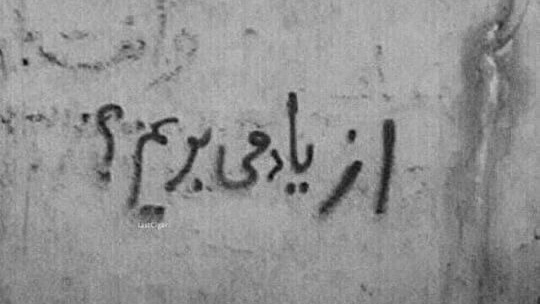 از یاد می بریم ؟